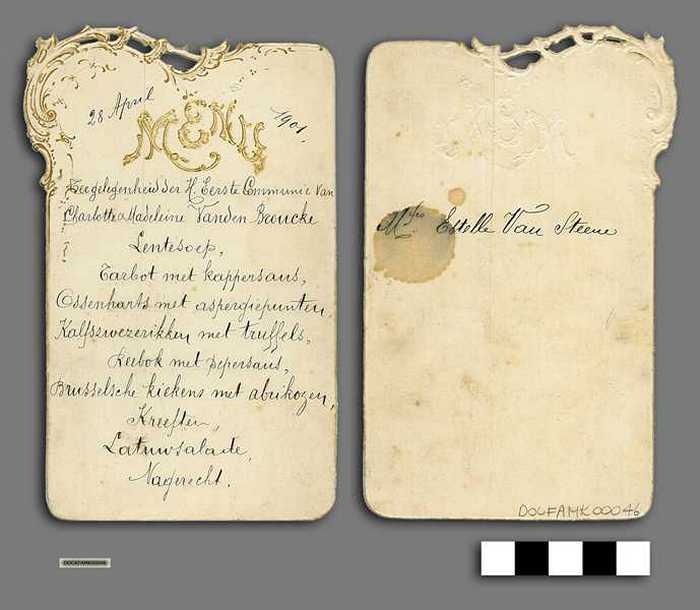 28 April
MENU
1901.
Ter gelegenheid der H. Eerste Communie van
Charlotte & Madeleine Vanden Broucke
Lentesoep,
Tarbot met kappersaus,
Ossenharts met aspergiepunten,
Kalfszwezerikken met truffels,
Reebok met pepersaus,
Brusselsche kiekens met abrikozen,
Kreeften,
Latuwsalade,
Nagerecht.
Estelle Van Steene
DOCFAMK00046